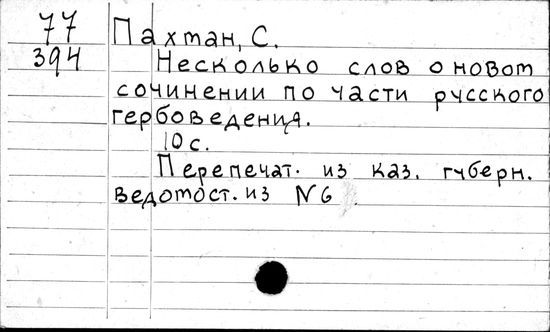 77 Пахман, С.
394 Несколько слов о новом
сочинении по части русского
гербоведения.
10 с.
Перепечат. из каз. губерн.
ведомост. из N6